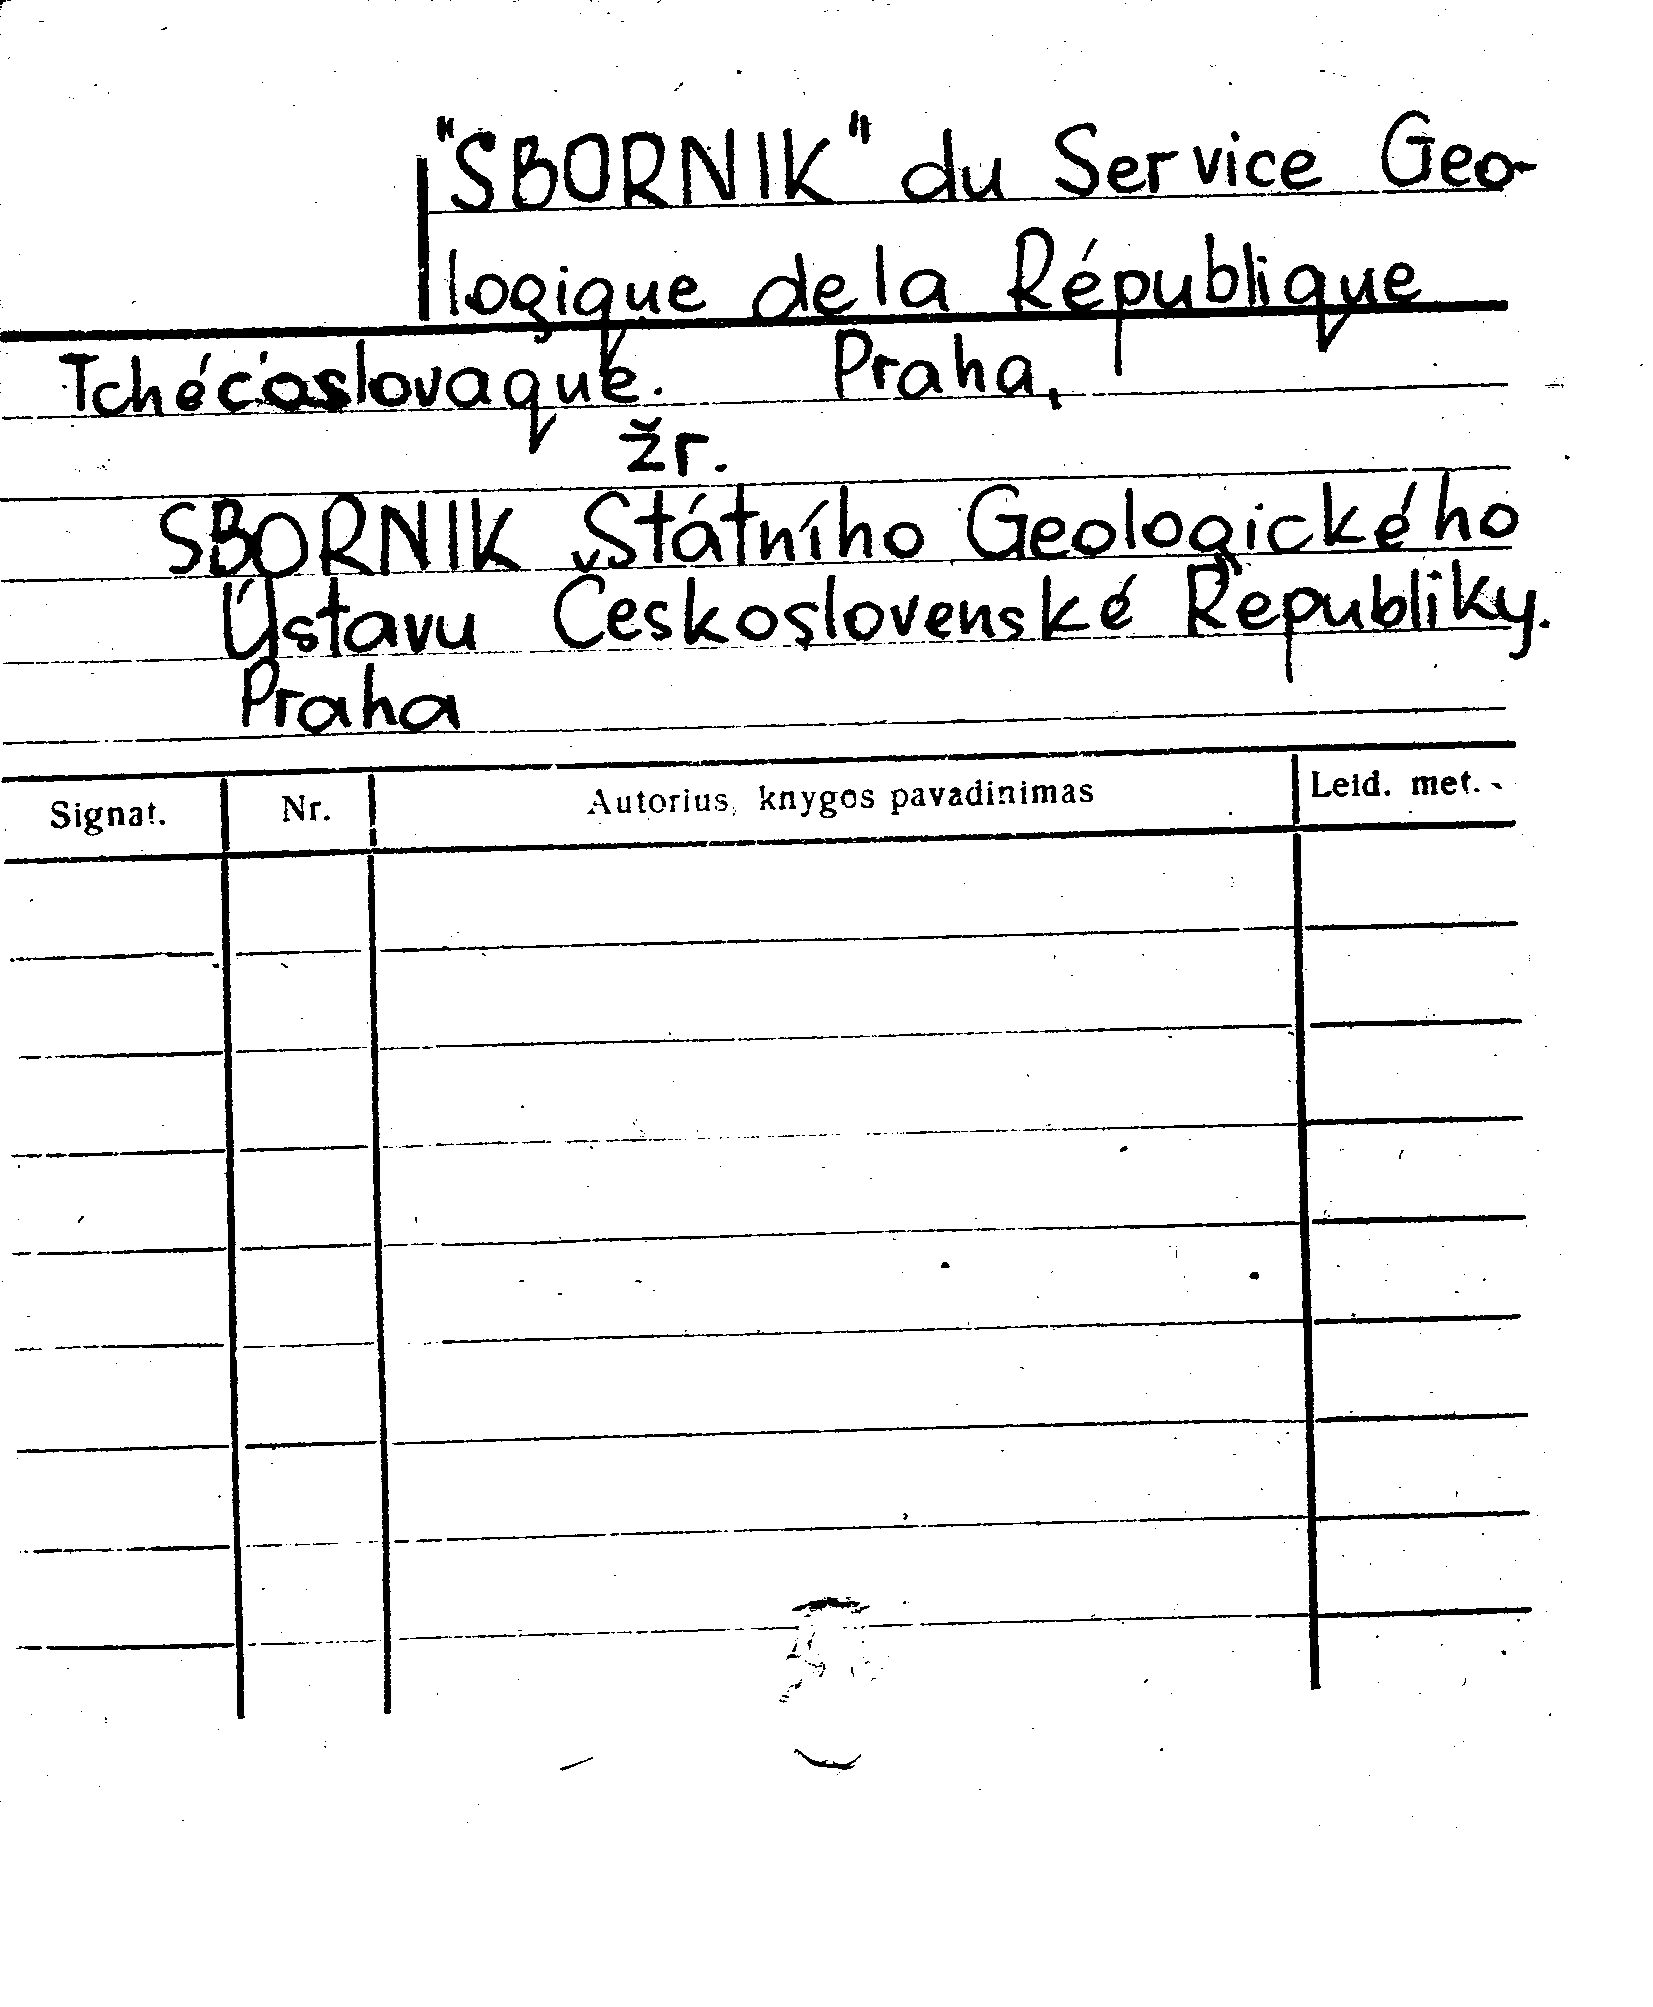 "SBORNIK" du Service Geo-
logique de la République
Tchécoslovaque. Praha,
žr.
SBORNIK Státního Geologického
Ústavu Československé Republiky.
Praha
Signat. Nr. Autorius, knygos pavadinimas Leid. met.